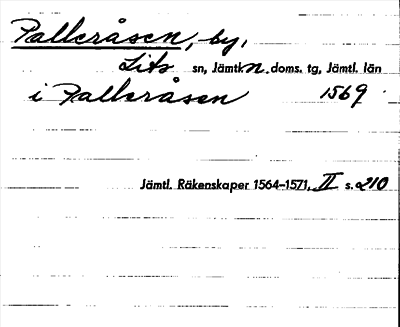 Palleråsen, by,
Lits sn, Jämtl. n. doms. tg, Jämtl. län
i Palleråsen 1569
Jämtl. Räkenskaper 1564–1571, II s. 210